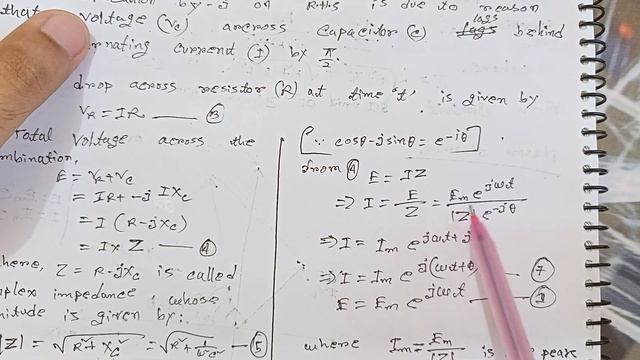 by -j on R.H.S is due to reason
that voltage (Vc) arcross Capacitor (c) lags behind
rnating current (I) by π/2.
drop across resistor (R) at time 't' is given by
VR = IR — ③
Total Voltage across the
mbination,
E = VR + VC
= IR + -j IXc
= I (R - jXc)
= I × Z — ④
here, Z = R - jXc is called
plex impedance whose
nitude is given by:
|Z| = √R² + Xc² = √R² + 1/ω²c² — ⑤
[∵ cosθ - jsinθ = e^-jθ]
from ④
E = IZ
⇒ I = E/Z = Em e^jωt / |Z| e^-jθ
⇒ I = Im e^jωt + j
⇒ I = Im e^j(ωt+θ) — ⑦
E = Em e^jωt — ⑧
where Im = Em/|Z| is peak